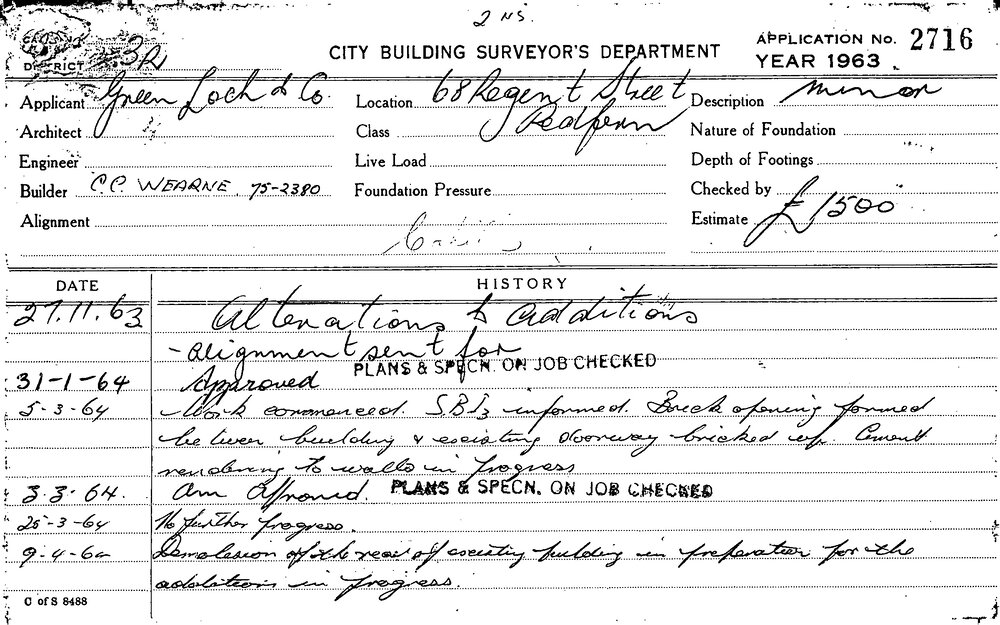 2 NS.
DISTRICT 3R
CITY BUILDING SURVEYOR'S DEPARTMENT
APPLICATION No. 2716
YEAR 1963
Applicant Green Loch & Co.
Location 68 Regent Street
Redfern
Description minor
Architect
Class
Nature of Foundation
Engineer
Live Load
Depth of Footings
Builder C.C. WEARNE. 75-2380
Foundation Pressure
Checked by
Alignment
Estimate £1500
DATE
HISTORY
27.11.63 Alterations & additions
- alignment sent for
PLANS & SPECN. ON JOB CHECKED
31-1-64 Approved
5-3-64 Work commenced. S.B.I. informed. Brick opening formed
between building & existing doorway bricked up. Cement
rendering to walls in progress
3.3.64. Am Approved. PLANS & SPECN. ON JOB CHECKED
25-3-64 No further progress.
9-4-64 Demolesion of the rear of existing building in preparation for the
additions in progress.
C of S 8488